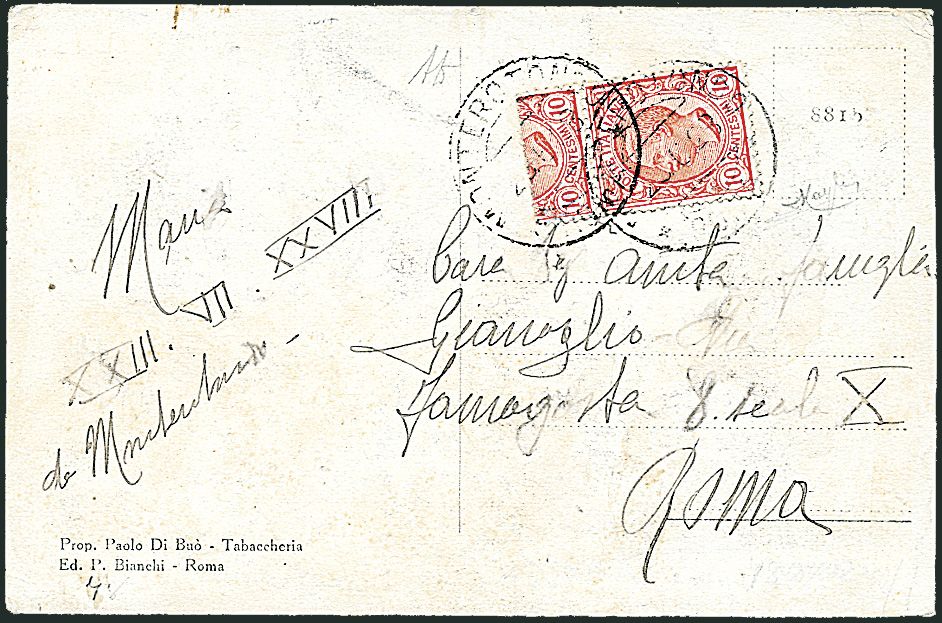 8815
Maria
XXIII. VII. XXVIII
da Monterotondo -
MONTEROTONDO
10 CENTESIMI 10
POSTE ITALIANE
10 CENTESIMI 10
Cara Anita famiglia
Gianoglio - Via
8. scala X
Roma
Prop. Paolo Di Buò - Tabaccheria
Ed. P. Bianchi - Roma